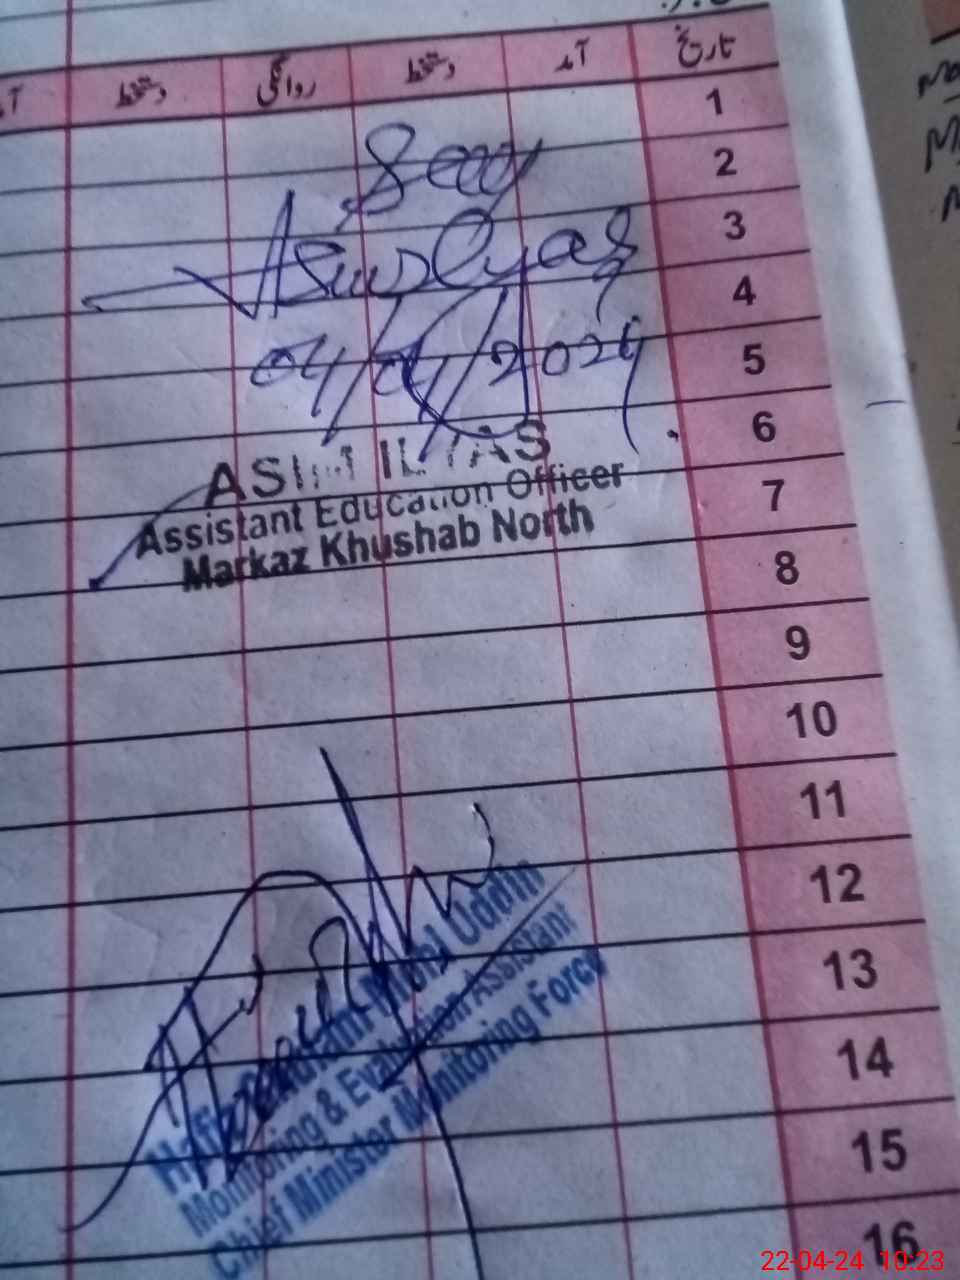 تاریخ آمد دستخط روانگی دستخط
1
2
Seen
3
Asim Ilyas
4
04/04/2024
5
6
ASIM ILYAS
Assistant Education Officer
7
Markaz Khushab North
8
9
10
11
12
13
14
15
16
Uddin
Monitoring & Evaluation Assistant
Chief Minister Monitoring Force
22-04-24 10:23